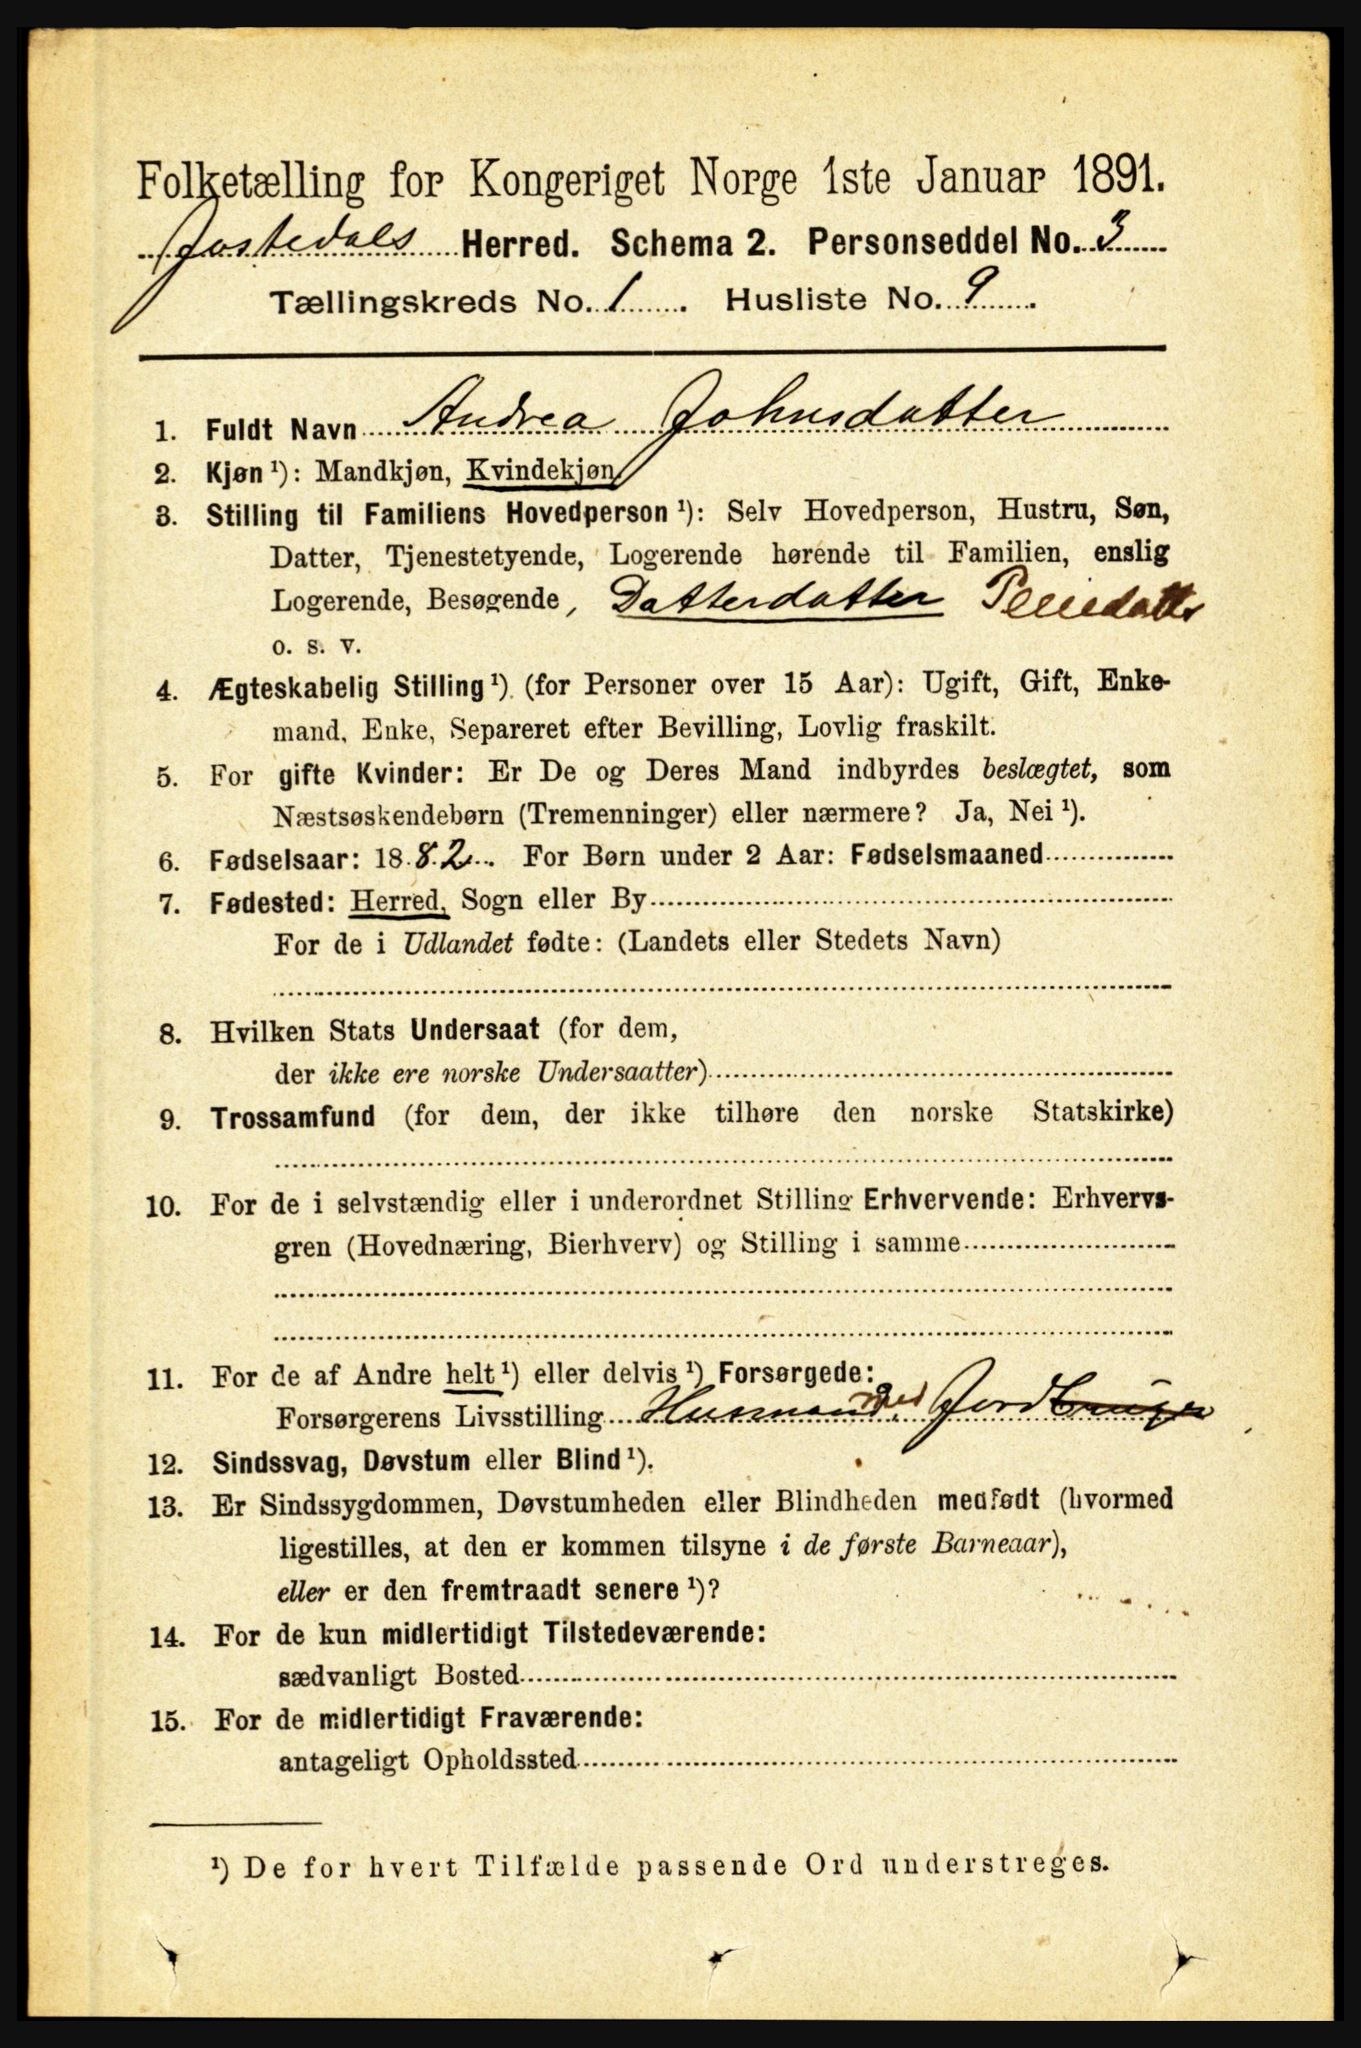 Folketælling for Kongeriget Norge 1ste Januar 1891.
Jostedals Herred. Schema 2. Personseddel No. 3
Tællingskreds No. 1. Husliste No. 9.
1. Fuldt Navn Andrea Johnsdatter
2. Kjøn ¹): Mandkjøn, Kvindekjøn.
3. Stilling til Familiens Hovedperson ¹): Selv Hovedperson, Hustru, Søn,
Datter, Tjenestetyende, Logerende hørende til Familien, enslig
Logerende, Besøgende, Datterdatter Pleiedatter
o. s. v.
4. Ægteskabelig Stilling ¹) (for Personer over 15 Aar): Ugift, Gift, Enke-
mand, Enke, Separeret efter Bevilling, Lovlig fraskilt.
5. For gifte Kvinder: Er De og Deres Mand indbyrdes beslægtet, som
Næstsøskendebørn (Tremenninger) eller nærmere? Ja, Nei ¹).
6. Fødselsaar: 1882. For Børn under 2 Aar: Fødselsmaaned
7. Fødested: Herred, Sogn eller By
For de i Udlandet fødte: (Landets eller Stedets Navn)
8. Hvilken Stats Undersaat (for dem,
der ikke ere norske Undersaatter)
9. Trossamfund (for dem, der ikke tilhøre den norske Statskirke)
10. For de i selvstændig eller i underordnet Stilling Erhvervende: Erhvervs-
gren (Hovednæring, Bierhverv) og Stilling i samme
11. For de af Andre helt ¹) eller delvis ¹) Forsørgede:
Forsørgerens Livsstilling Husmand med Jordbruger
12. Sindssvag, Døvstum eller Blind ¹).
13. Er Sindssygdommen, Døvstumheden eller Blindheden medfødt (hvormed
ligestilles, at den er kommen tilsyne i de første Barneaar),
eller er den fremtraadt senere ¹)?
14. For de kun midlertidigt Tilstedeværende:
sædvanligt Bosted
15. For de midlertidigt Fraværende:
antageligt Opholdssted
¹) De for hvert Tilfælde passende Ord understreges.